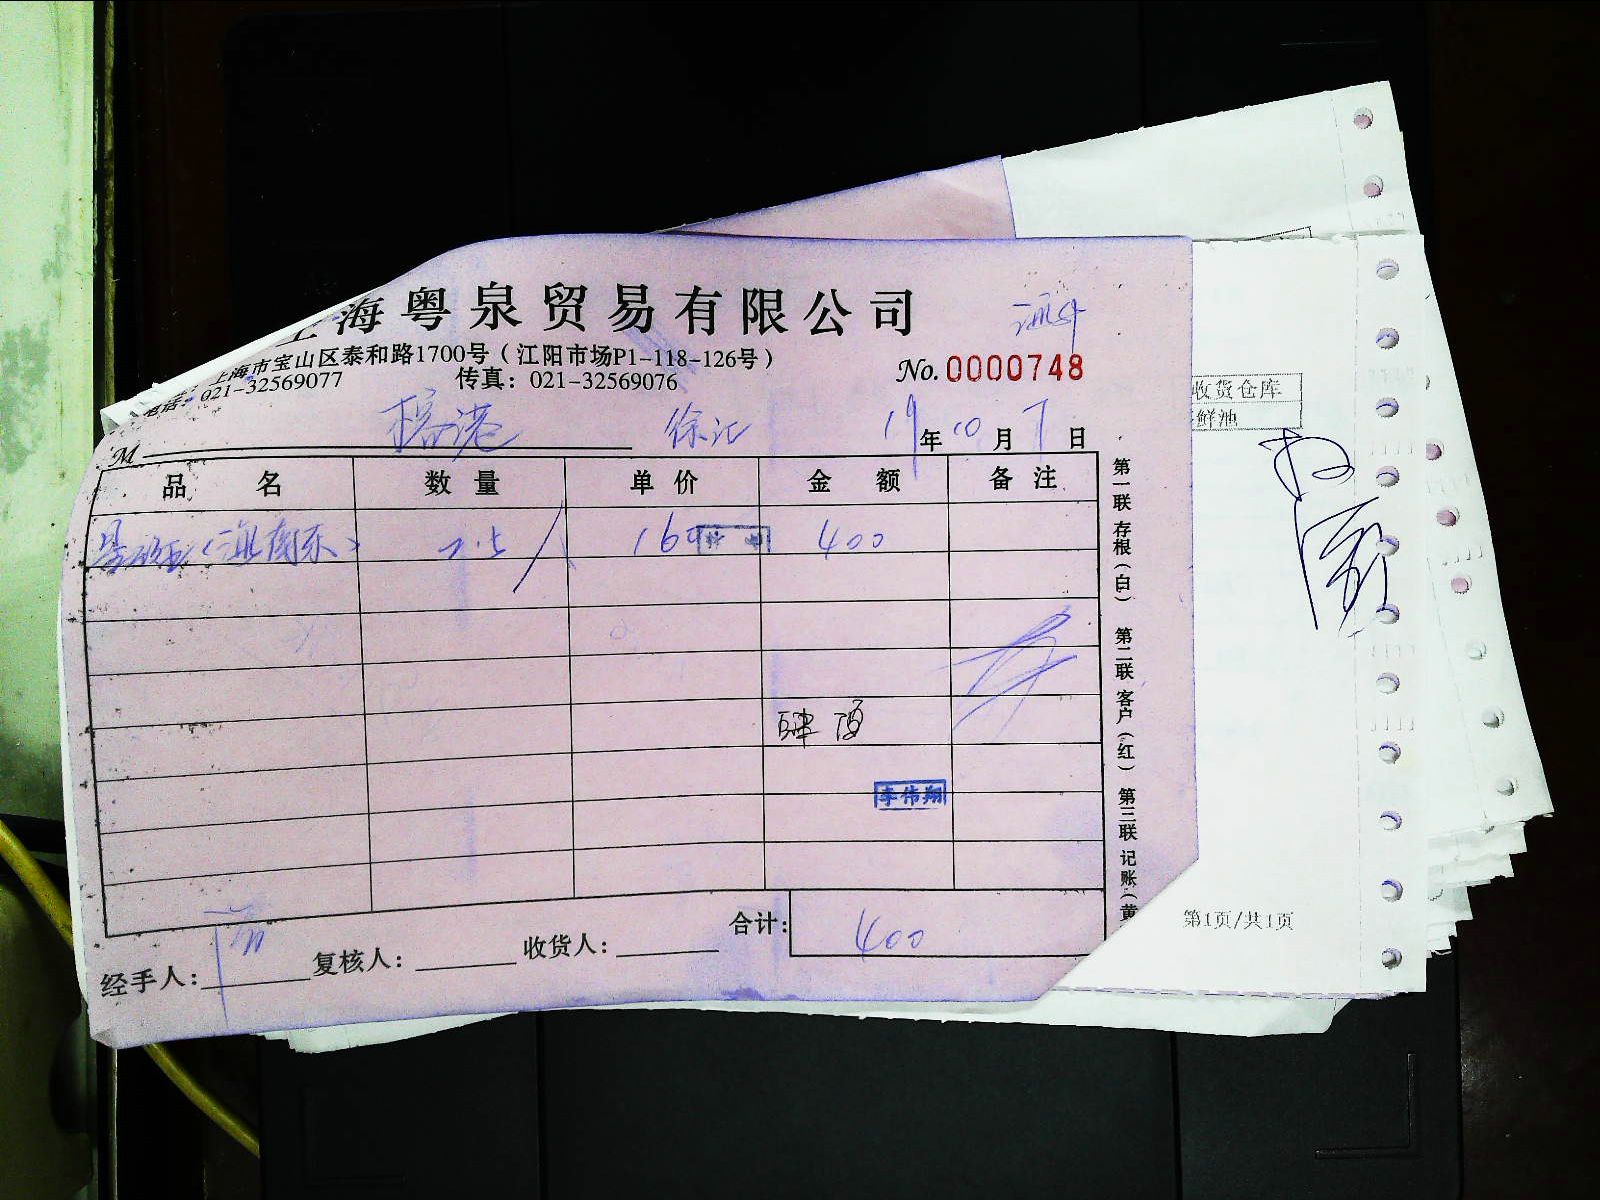 上海粤泉贸易有限公司
上海市宝山区泰和路1700号（江阳市场P1-118-126号）
电话：021-32569077 传真：021-32569076
No. 0000748
M 榕港 徐汇 19年10月7日
品名 数量 单价 金额 备注
(海南东) 2.5 160 400
肆佰
李伟翔
合计： 400
经手人： 复核人： 收货人：
第一联 存根（白） 第二联 客户（红） 第三联 记账（黄
收货仓库
鲜池
第1页/共1页